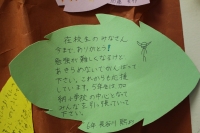 在校生のみなさん
今までありがとう!
勉強が難しくなるけど
あきらめないでがんばって
ださい。これからも応援
しています。5年生は
小学校の中心となって
みんなを引っ張っていって
ください。
6年 長谷川